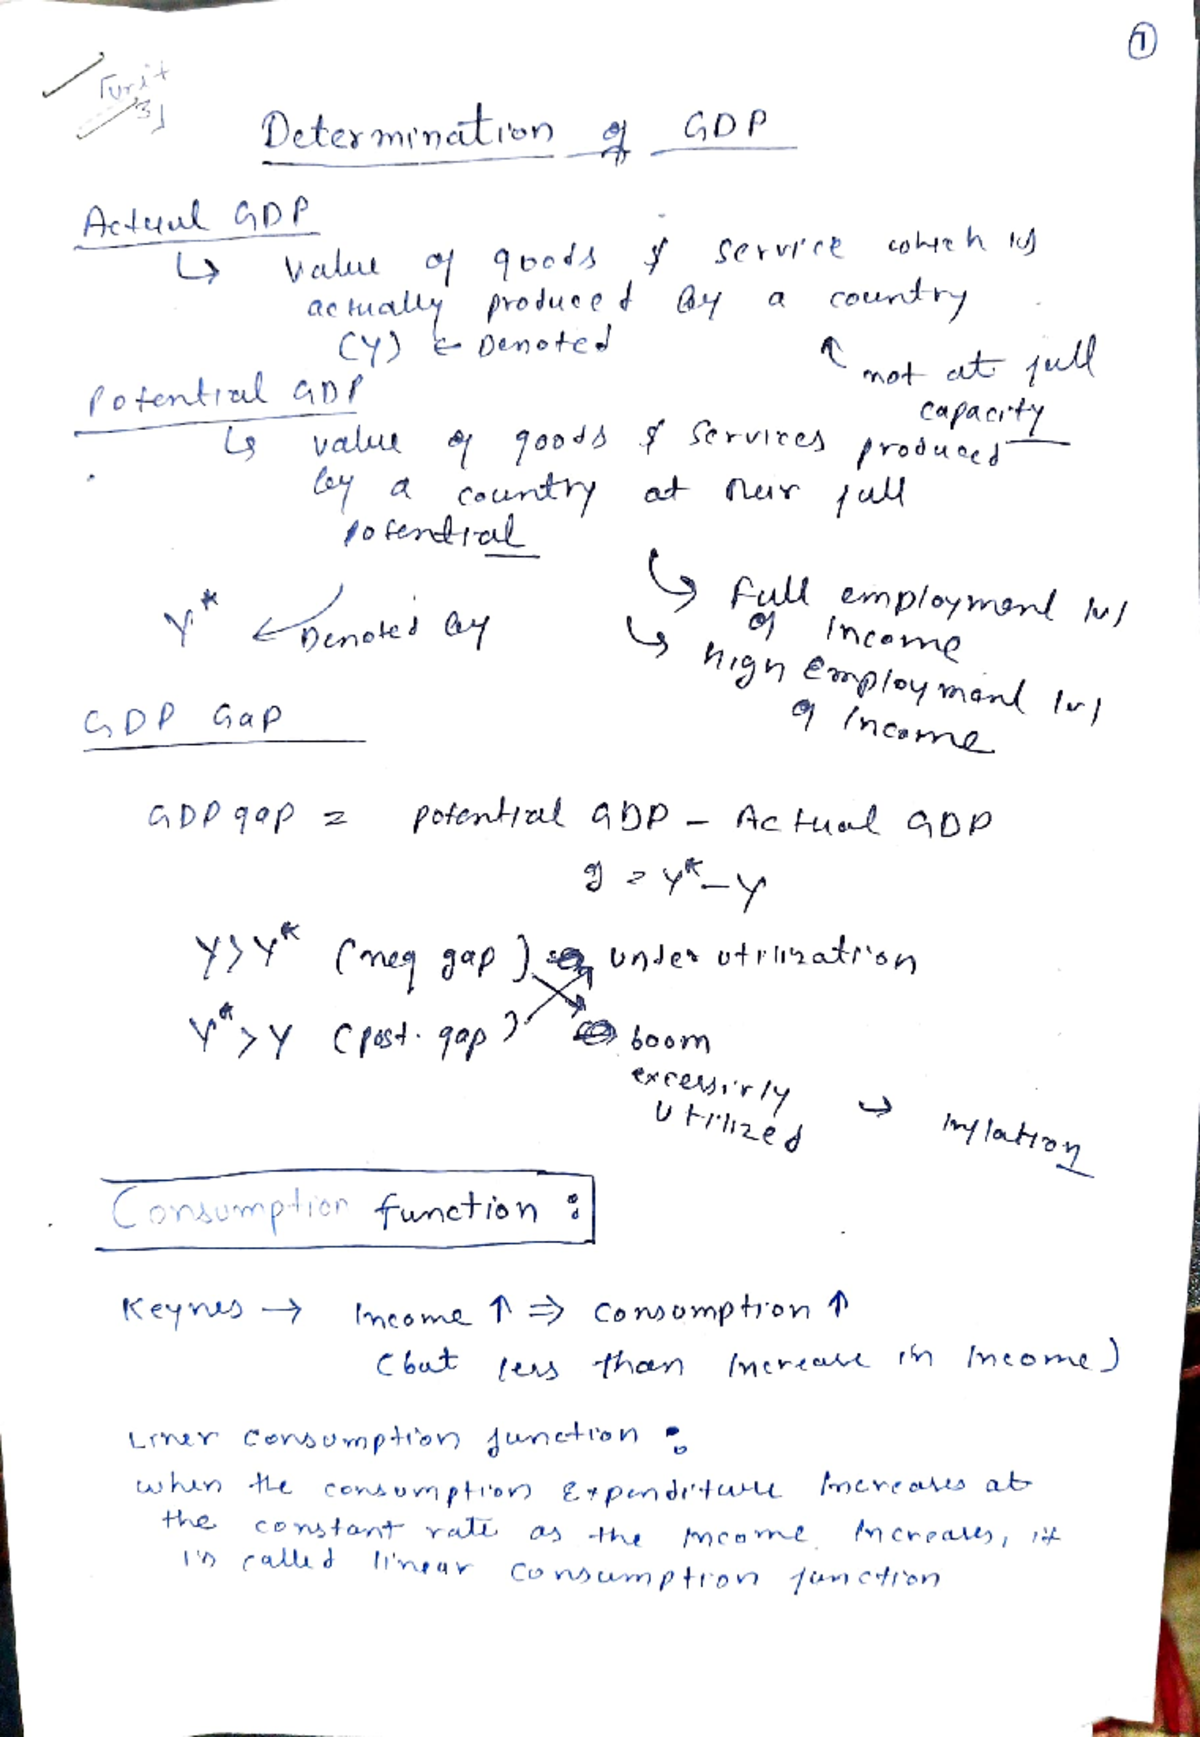 ①
[unit
3]
Determination of GDP
Actual GDP
↳ Value of goods & service which is
actually produced by a country
(Y) ← Denoted
↑ not at full
capacity
Potential GDP
↳ value of goods & services produced
by a country at their full
potential
↳ Full employment lvl
of income
Y* ← Denoted by
↳ high Employment lvl
of income
GDP Gap
GDP gap = potential GDP - Actual GDP
g = Y* - Y
Y > Y* (neg gap) under utilization
Y* > Y (post. gap) boom
excessivly
utilized → inflation
Consumption function :
Keynes → Income ↑ ⇒ consumption ↑
(but less than increase in income)
Liner consumption function :
when the consumption Expenditure increases at
the constant rate as the income increases, it
is called linear consumption function